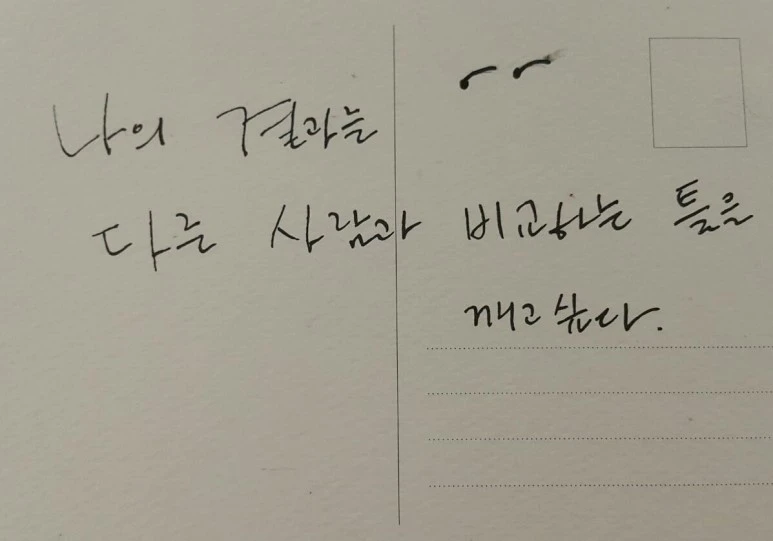 나의 결과는
다른 사람과 비교하는 틀을
깨고 싶다.